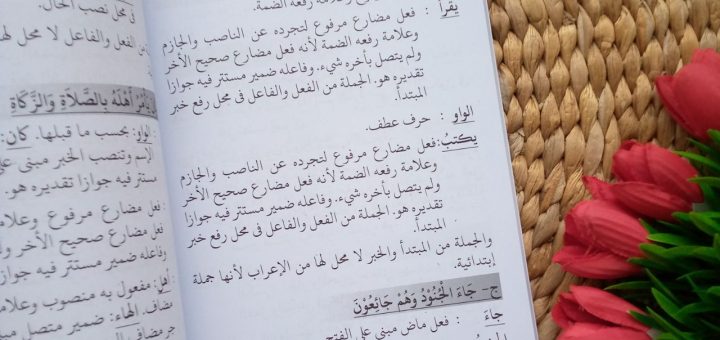 وعلامة رفعه الضمة.
يقرأ : فعل مضارع مرفوع لتجرده عن الناصب والجازم
وعلامة رفعه الضمة لأنه فعل مضارع صحيح الآخر
ولم يتصل بأخره شيء. وفاعله ضمير مستتر فيه جوازا
تقديره هو. الجملة من الفعل والفاعل في محل رفع خبر
المبتدأ.
الواو : حرف عطف.
يكتبُ: فعل مضارع مرفوع لتجرده عن الناصب والجازم
وعلامة رفعه الضمة لأنه فعل مضارع صحيح الأخر
ولم يتصل بأخره شيء. وفاعله ضمير مستتر فيه جوازا
تقديره هو. الجملة من الفعل والفاعل في محل رفع خبر
المبتدأ.
والجملة من المبتدأ والخبر لا محل لها من الإعراب لأنها جملة
إبتدائية.
ج- جَاءَ الْجُنُوْدُ وَهُمْ جَائِعُوْنَ
جاءَ : فعل ماض مبني على الفتح
في محل نصب الحال.
من الفعل والفاعل لا محل لها
أْمُرُ أَهْلَهُ بِالصَّلَاةِ وَالزَّكَاةِ
: الواو: بحسب ما قبلها. كان:
الإسم وتنصب الخبر مبني على
مستتر فيه جوازا تقديره هو.
: فعل مضارع مرفوع وعلامة
مضارع صحيح الأخر ولم
وفاعله ضمير مستتر فيه جوازا
: أهل: مفعول به منصوب وعلامة
مضاف. الهاء: ضمير متصل مبني
جر مضاف إليه